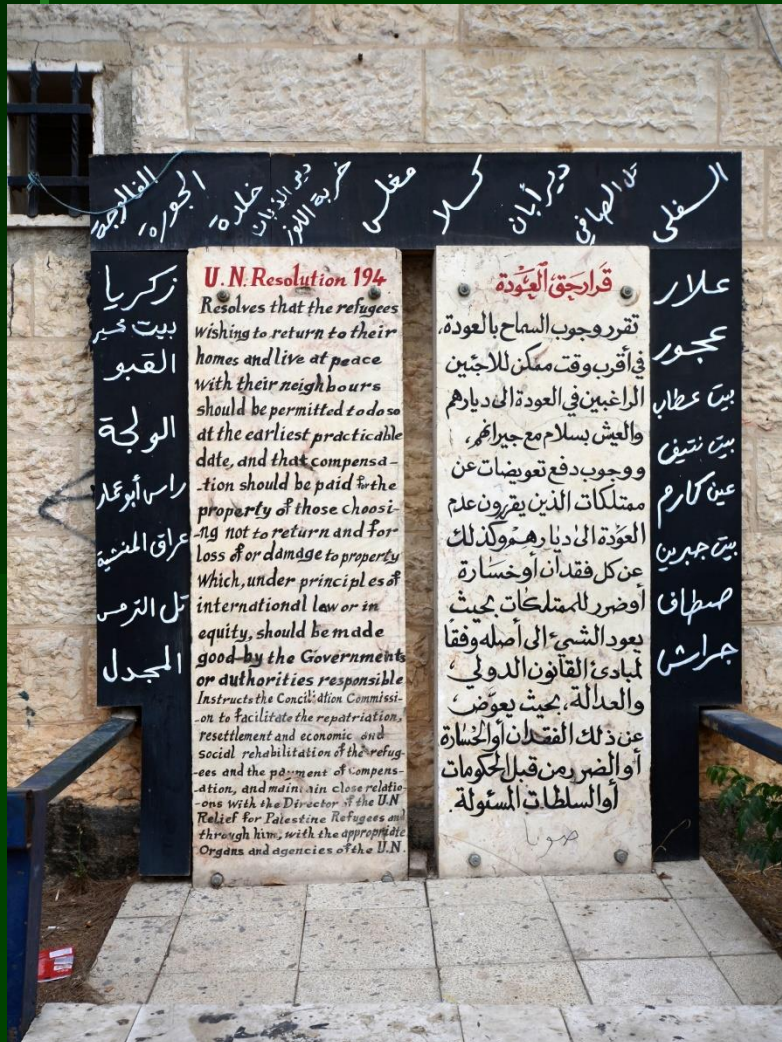 الفالوجة
الجورة
خلدة
دير الذبان
خربة اللوز
مغلس
كسلا
دير أبان
تل الصافي
السفلى
زكريا
بيت محسير
القبو
الولجة
راس أبو عمار
عراق المنشية
تل الترمس
المجدل
U.N. Resolution 194
Resolves that the refugees
wishing to return to their
homes and live at peace
with their neighbours
should be permitted to do so
at the earliest practicable
date, and that compensa-
-tion should be paid for the
property of those choosi-
-ng not to return and for
loss of or damage to property
which, under principles of
international law or in
equity, should be made
good by the Governments
or authorities responsible
Instructs the Conciliation Commissi-
-on to facilitate the repatriation,
resettlement and economic and
social rehabilitation of the refug-
-ees and the payment of compens-
-ation, and maintain close relatio-
-ons with the Director of the U.N
Relief for Palestine Refugees and
through him, with the appropriate
Organs and agencies of the U.N.
قرار حق العودة
تقرر وجوب السماح بالعودة،
في أقرب وقت ممكن للاجئين
الراغبين في العودة الى ديارهم
والعيش بسلام مع جيرانهم،
ووجوب دفع تعويضات عن
ممتلكات الذين يقررون عدم
العودة الى ديارهم وكذلك
عن كل فقدان أو خسارة
أو ضرر للممتلكات بحيث
يعود الشيئ الى أصله وفقا
لمبادئ القانون الدولي
والعدالة، بحيث يعوض
عن ذلك الفقدان أو الخسارة
أو الضرر من قبل الحكومات
أو السلطات المسئولة.
صوبا
علار
عجور
بيت عطاب
بيت نتيف
عين كارم
بيت جبرين
صطاف
جراش